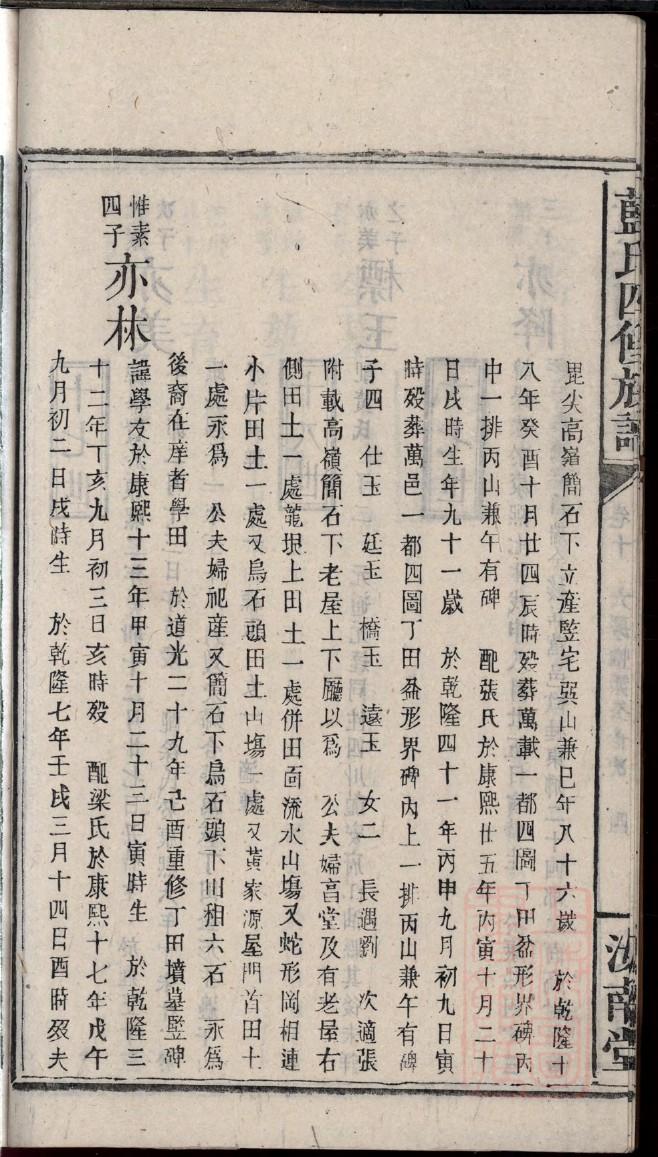 藍氏四修族譜
汝南堂
毘尖高嶺簡石下立產監宅巽山兼巳年八十六歲 於乾隆十
八年癸酉十月廿四辰時歿葬萬載一都四圖丁田盆形界碑內
中一排丙山兼午有碑 配張氏於康熙廿五年丙寅十月二十
日戌時生年九十一歲 於乾隆四十一年丙申九月初九日寅
時歿葬萬邑一都四圖丁田盆形界碑內上一排丙山兼午有碑
子四 仕玉 廷玉 橋玉 遠玉 女二 長適劉 次適張
附載高嶺簡石下老屋上下廳以爲 公夫婦亯堂及有老屋右
側田土一處龍垠上田土一處併田面流水山塲又蛇形岡相連
小片田土一處又烏石頭田土山塲一處又黃家源屋門首田土
一處永爲 公夫婦祀產又簡石下烏石頭下山租六石 永爲
後裔在庠者學田 於道光二十九年己酉重修丁田墳墓監碑
惟素四子 亦林
諱學友於康熙十三年甲寅十月二十三日寅時生 於乾隆三
十二年丁亥九月初三日亥時歿 配梁氏於康熙十七年戊午
九月初二日戌時生 於乾隆七年壬戌三月十四日酉時歿夫